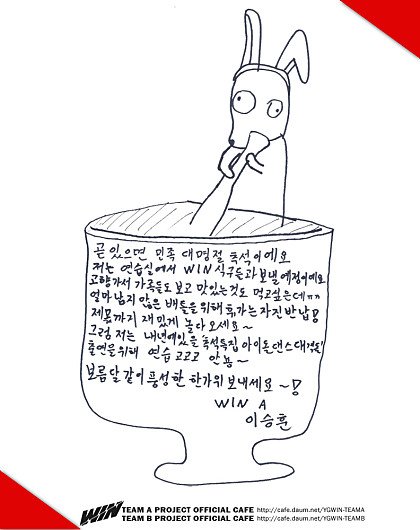 곧 있으면 민족 대명절 추석이에요
저는 연습실에서 WIN 식구들과 보낼 예정이에요
고향가서 가족들도 보고 맛있는것도 먹고싶은데ㅠㅠ
얼마남지 않은 배틀을 위해 휴가는 자진 반납!
제 몫까지 재밌게 놀다오세요~
그럼 저는 내년에있을 '추석특집 아이돌댄스대격돌!'
출연을위해 연습 고고고 안뇽~
보름달 같이 풍성한 한가위 보내세요~!
WIN A
이승훈
WIN TEAM A PROJECT OFFICIAL CAFE http://cafe.daum.net/YGWIN-TEAMA
TEAM B PROJECT OFFICIAL CAFE http://cafe.daum.net/YGWIN-TEAMB